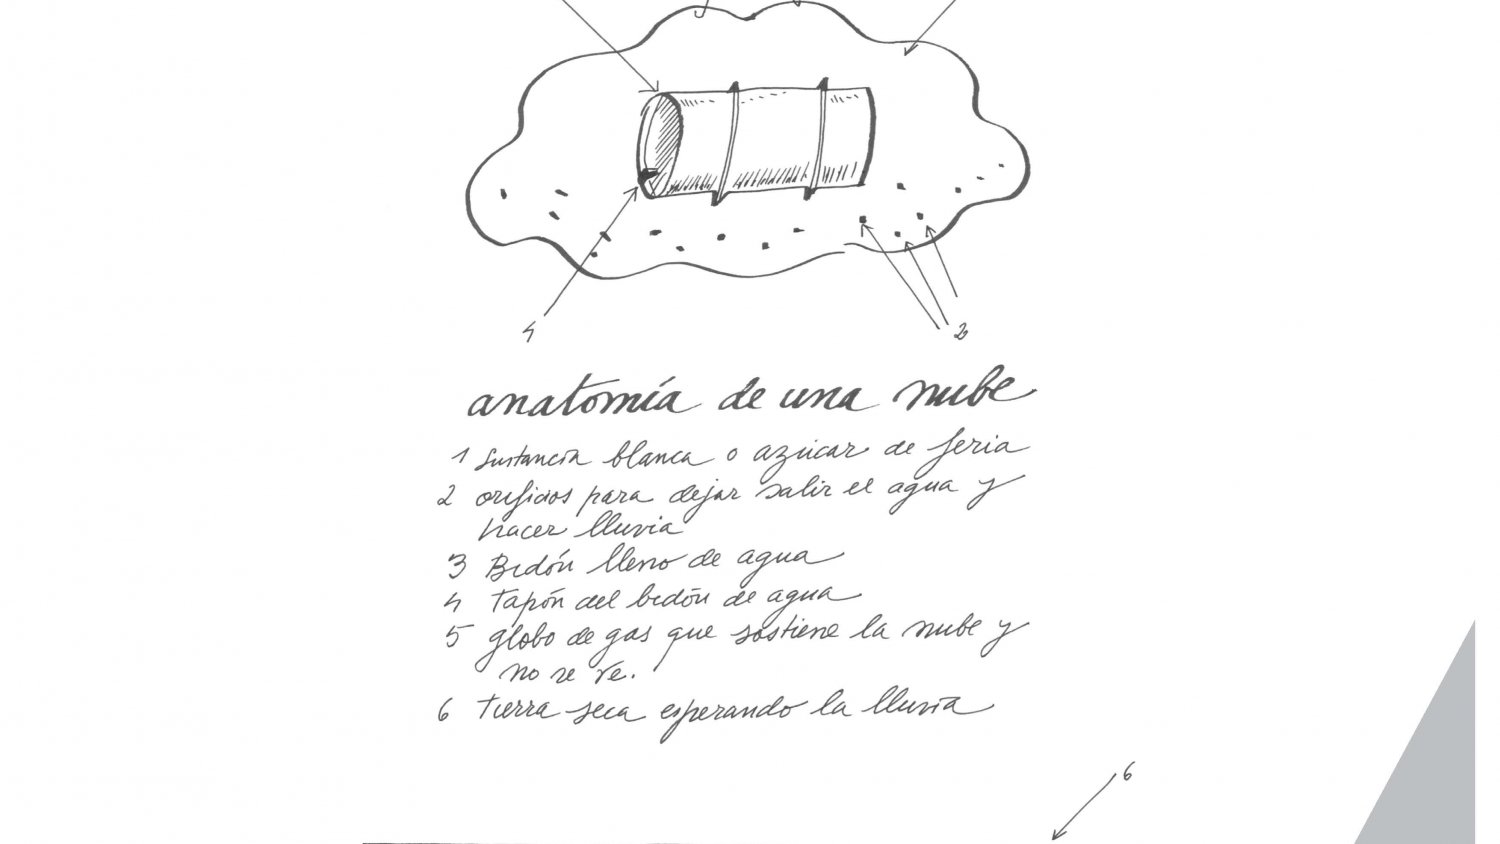 4
2
anatomía de una nube
1 Sustancia blanca o azúcar de feria
2 orificios para dejar salir el agua y
hacer lluvia
3 Bidón lleno de agua
4 Tapón del bidón de agua
5 globo de gas que sostiene la nube y
no se ve.
6 Tierra seca esperando la lluvia
6